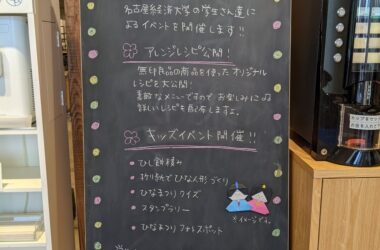 名古屋経済大学の学生さん達に
よるイベントを開催します!!
アレンジレシピ公開!
無印良品の商品を使ったオリジナル
レシピを大公開!
素敵なメニューですので お楽しみに♪
詳しいレシピを配布しますよ。
キッズイベント開催!!
・ひし餅積み
・折り紙でひな人形づくり
・ひなまつりクイズ
・スタンプラリー
・ひなまつりフォトスポット
※イメージです。